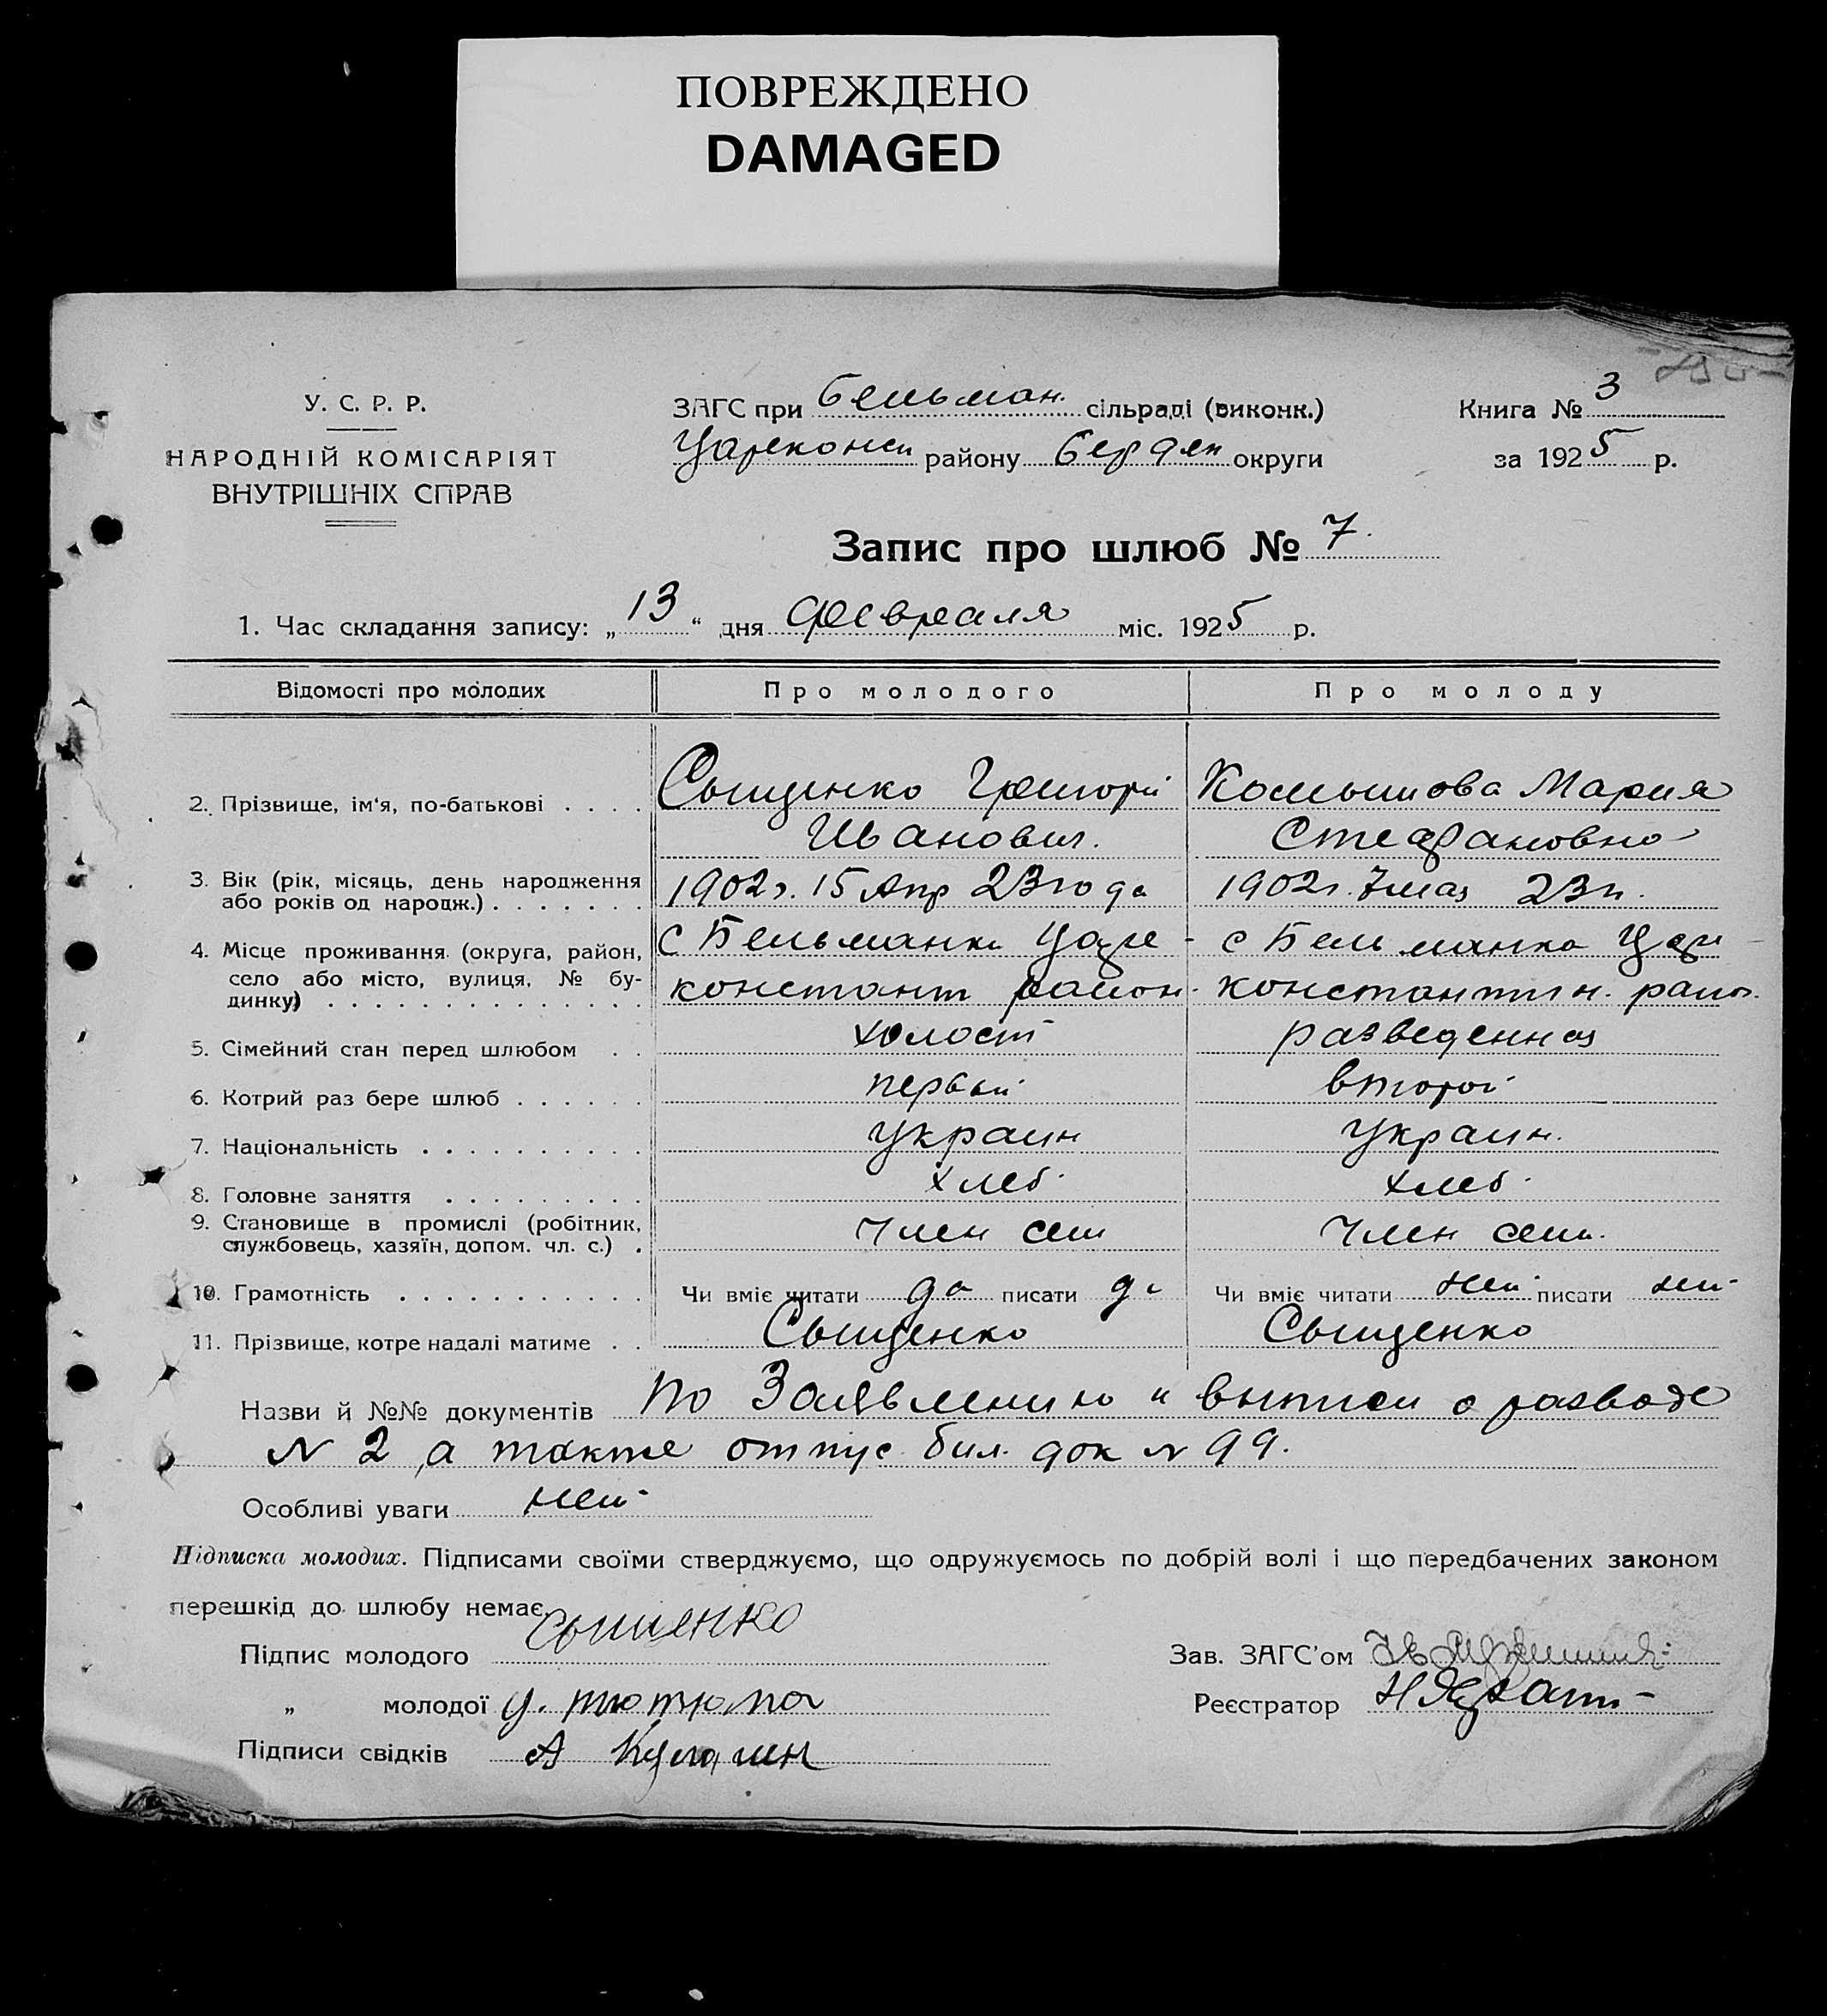 ПОВРЕЖДЕНО
DAMAGED
У. С. Р. Р.
НАРОДНІЙ КОМІСАРІЯТ
ВНУТРІШНІХ СПРАВ
ЗАГС при Бельман. сільраді (виконк.)
Цареконст району Бердян округи
Книга № 3
за 1925 р.
Запис про шлюб № 7.
1. Час складання запису: „13“ дня Февраля міс. 1925 р.
Відомості про молодих Про молодого Про молоду
2. Прізвище, ім'я, по-батькові . . . . Сыщенко Григорий Комышова Мария
Иванович. Стефановна
3. Вік (рік, місяць, день народження 1902г. 15 Апр 23 года 1902г. 7 мая 23 г.
або років од народж.) . . . . . . .
4. Місце проживання (округа, район, с Бельманка Царе- с Бельманка Царе-
село або місто, вулиця, № бу-
динку) . . . . . . . . . . . . . констант район. константин. район.
5. Сімейний стан перед шлюбом . . холост разведенная
6. Котрий раз бере шлюб . . . . . . первый второй
7. Національність . . . . . . . . . . украин украин.
8. Головне заняття . . . . . . . . . хлеб. хлеб.
9. Становище в промислі (робітник,
службовець, хазяїн, допом. чл. с.) . член сем член сем.
10. Грамотність . . . . . . . . . . . Чи вміє читати да писати да Чи вміє читати нет писати нет
11. Прізвище, котре надалі матиме . . Сыщенко Сыщенко
Назви й №№ документів по Заявлению и выписи о разводе
N 2, а также отпус. бил. док N 99.
Особливі уваги нет
Підписка молодих. Підписами своїми стверджуємо, що одружуємось по добрій волі і що передбачених законом
перешкід до шлюбу немає.
Підпис молодого Сыщенко
Зав. ЗАГС'ом
„ молодої
Реєстратор
Підписи свідків А